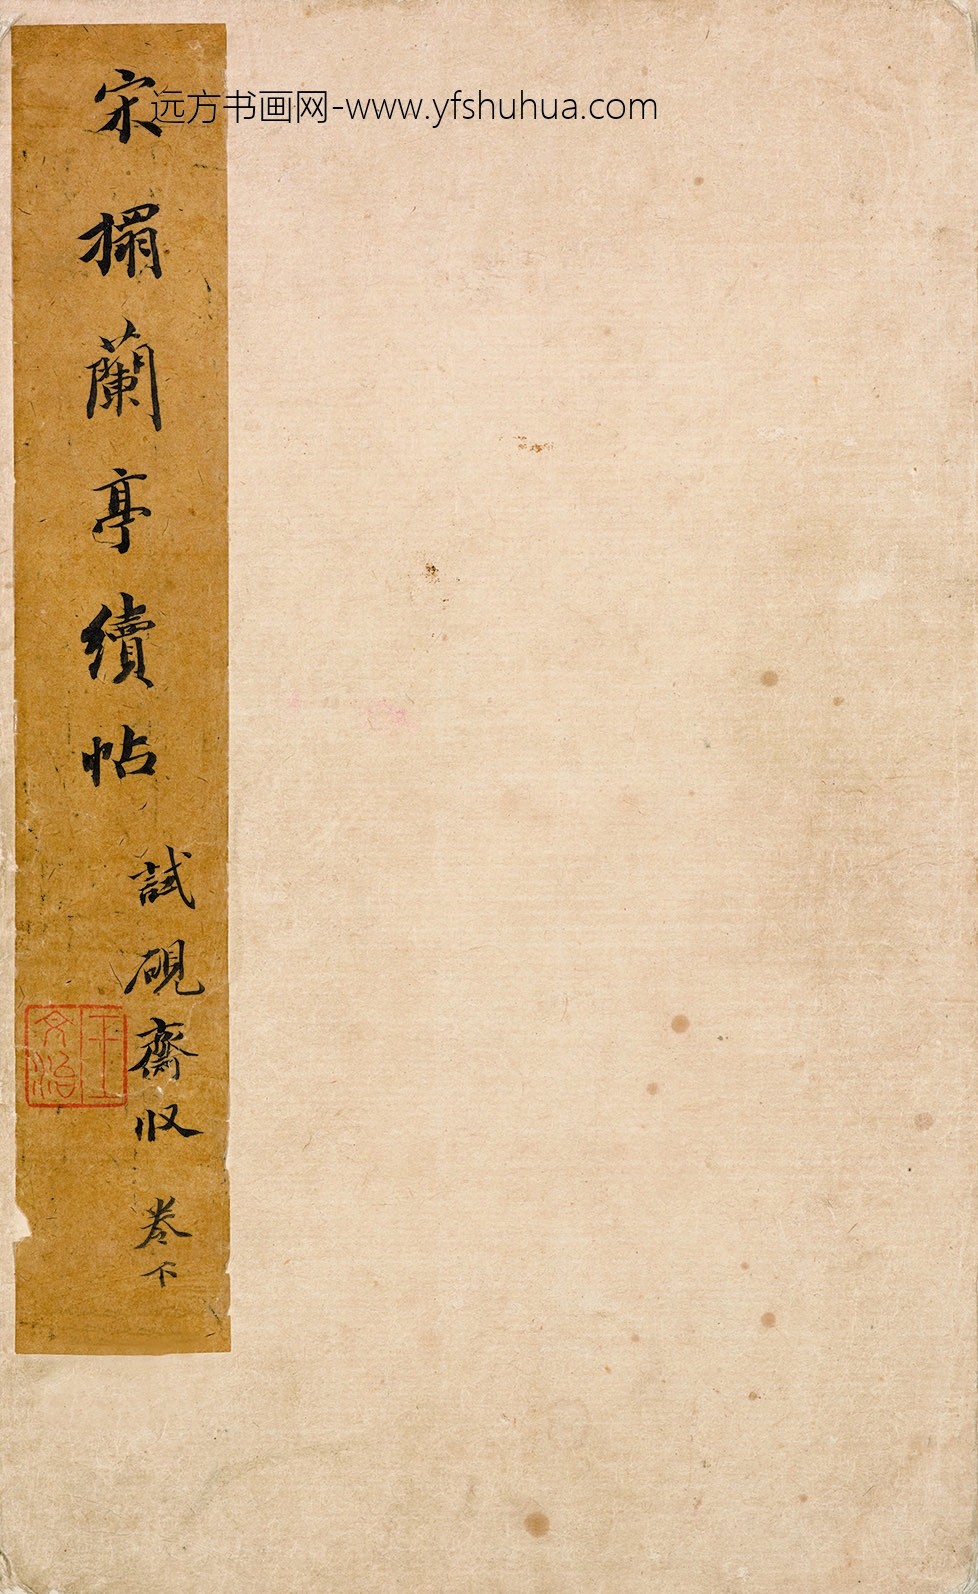 远方书画网-www.yfshuhua.com
宋搨蘭亭續帖
試硯齋收
卷下
王文治